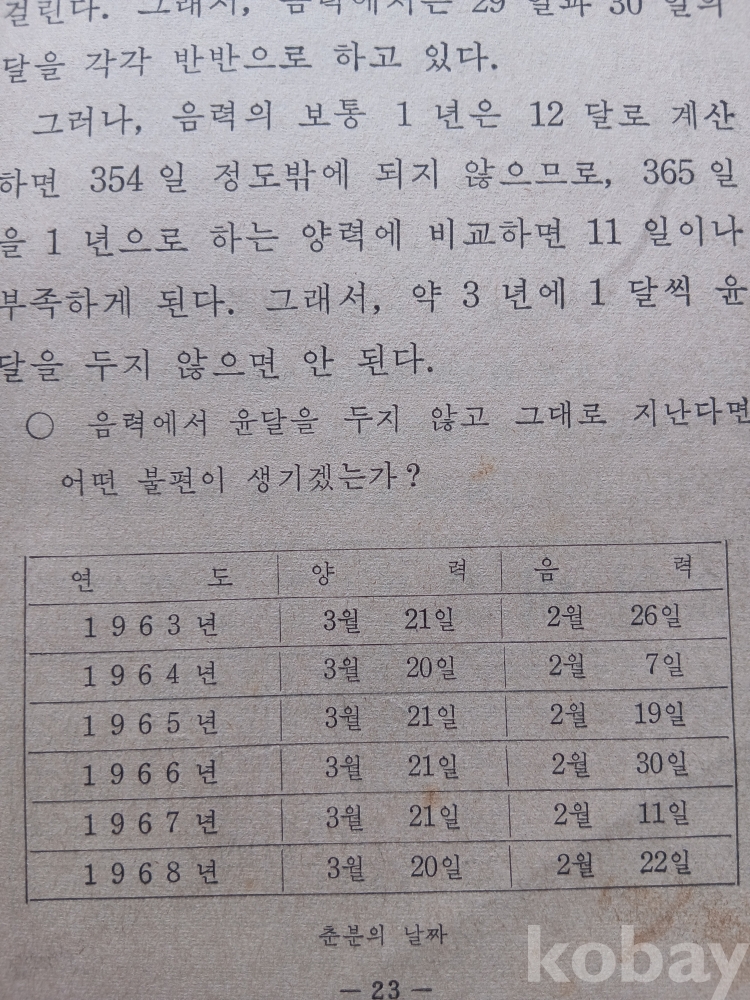 걸린다. 그래서, 음력에서는 29 일과 30 일의
달을 각각 반반으로 하고 있다.
그러나, 음력의 보통 1 년은 12 달로 계산
하면 354 일 정도밖에 되지 않으므로, 365 일
을 1 년으로 하는 양력에 비교하면 11 일이나
부족하게 된다. 그래서, 약 3 년에 1 달씩 윤
달을 두지 않으면 안 된다.
○ 음력에서 윤달을 두지 않고 그대로 지난다면
어떤 불편이 생기겠는가?
연 도 양 력 음 력
1963년 3월 21일 2월 26일
1964년 3월 20일 2월 7일
1965년 3월 21일 2월 19일
1966년 3월 21일 2월 30일
1967년 3월 21일 2월 11일
1968년 3월 20일 2월 22일
춘분의 날짜
— 23 —
kobay